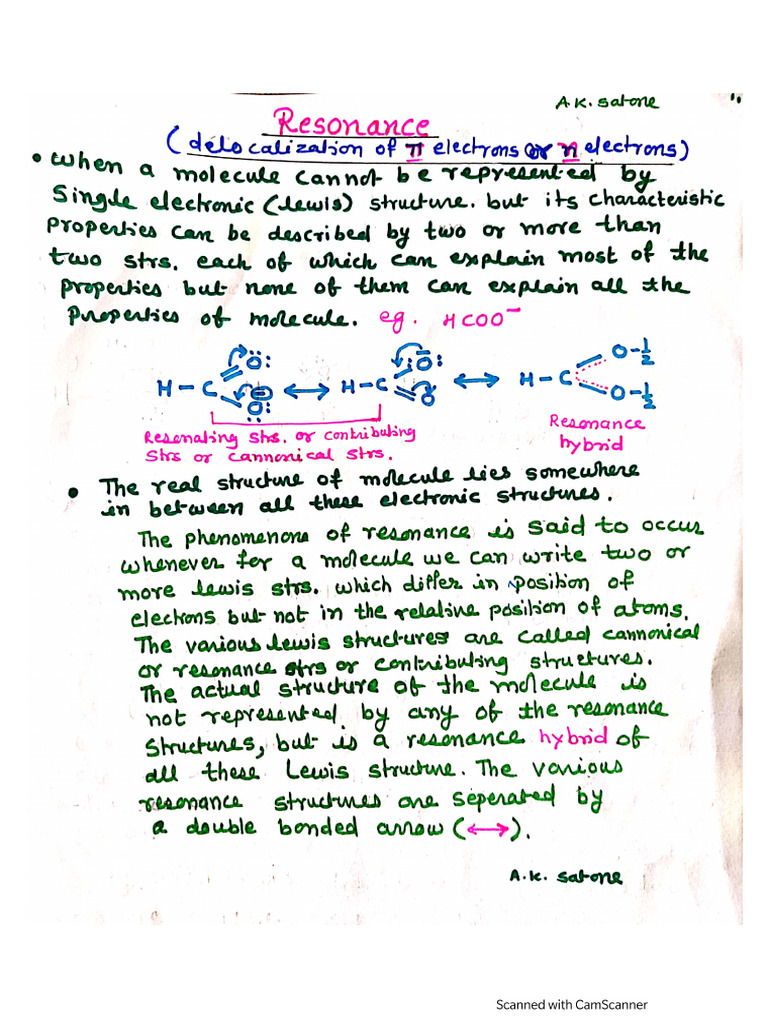 A.K. Satone
Resonance
(delocalization of π electrons or n electrons)
• When a molecule cannot be represented by
Single electronic (Lewis) structure. but its characteristic
Properties can be described by two or more than
two strs. each of which can explain most of the
properties but none of them can explain all the
Properties of molecule. eg. HCOO⁻
H-C Ö: Ö: ⊖ ↔ H-C :Ö: O ↔ H-C O-½ O-½
Resonating strs. or contributing
strs or cannonical strs.
Resonance
hybrid
• The real structure of molecule lies somewhere
in between all these electronic structures.
The phenomenons of resonance is said to occur
whenever for a molecule we can write two or
more lewis strs. which differ in position of
electrons but not in the relative position of atoms.
The various lewis structures are called cannonical
or resonance strs or contributing structures.
The actual structure of the molecule is
not represented by any of the resonance
Structures, but is a resonance hybrid of
all these Lewis structure. The various
resonance structures are seperated by
a double bonded arrow (↔).
A.K. Satone
Scanned with CamScanner